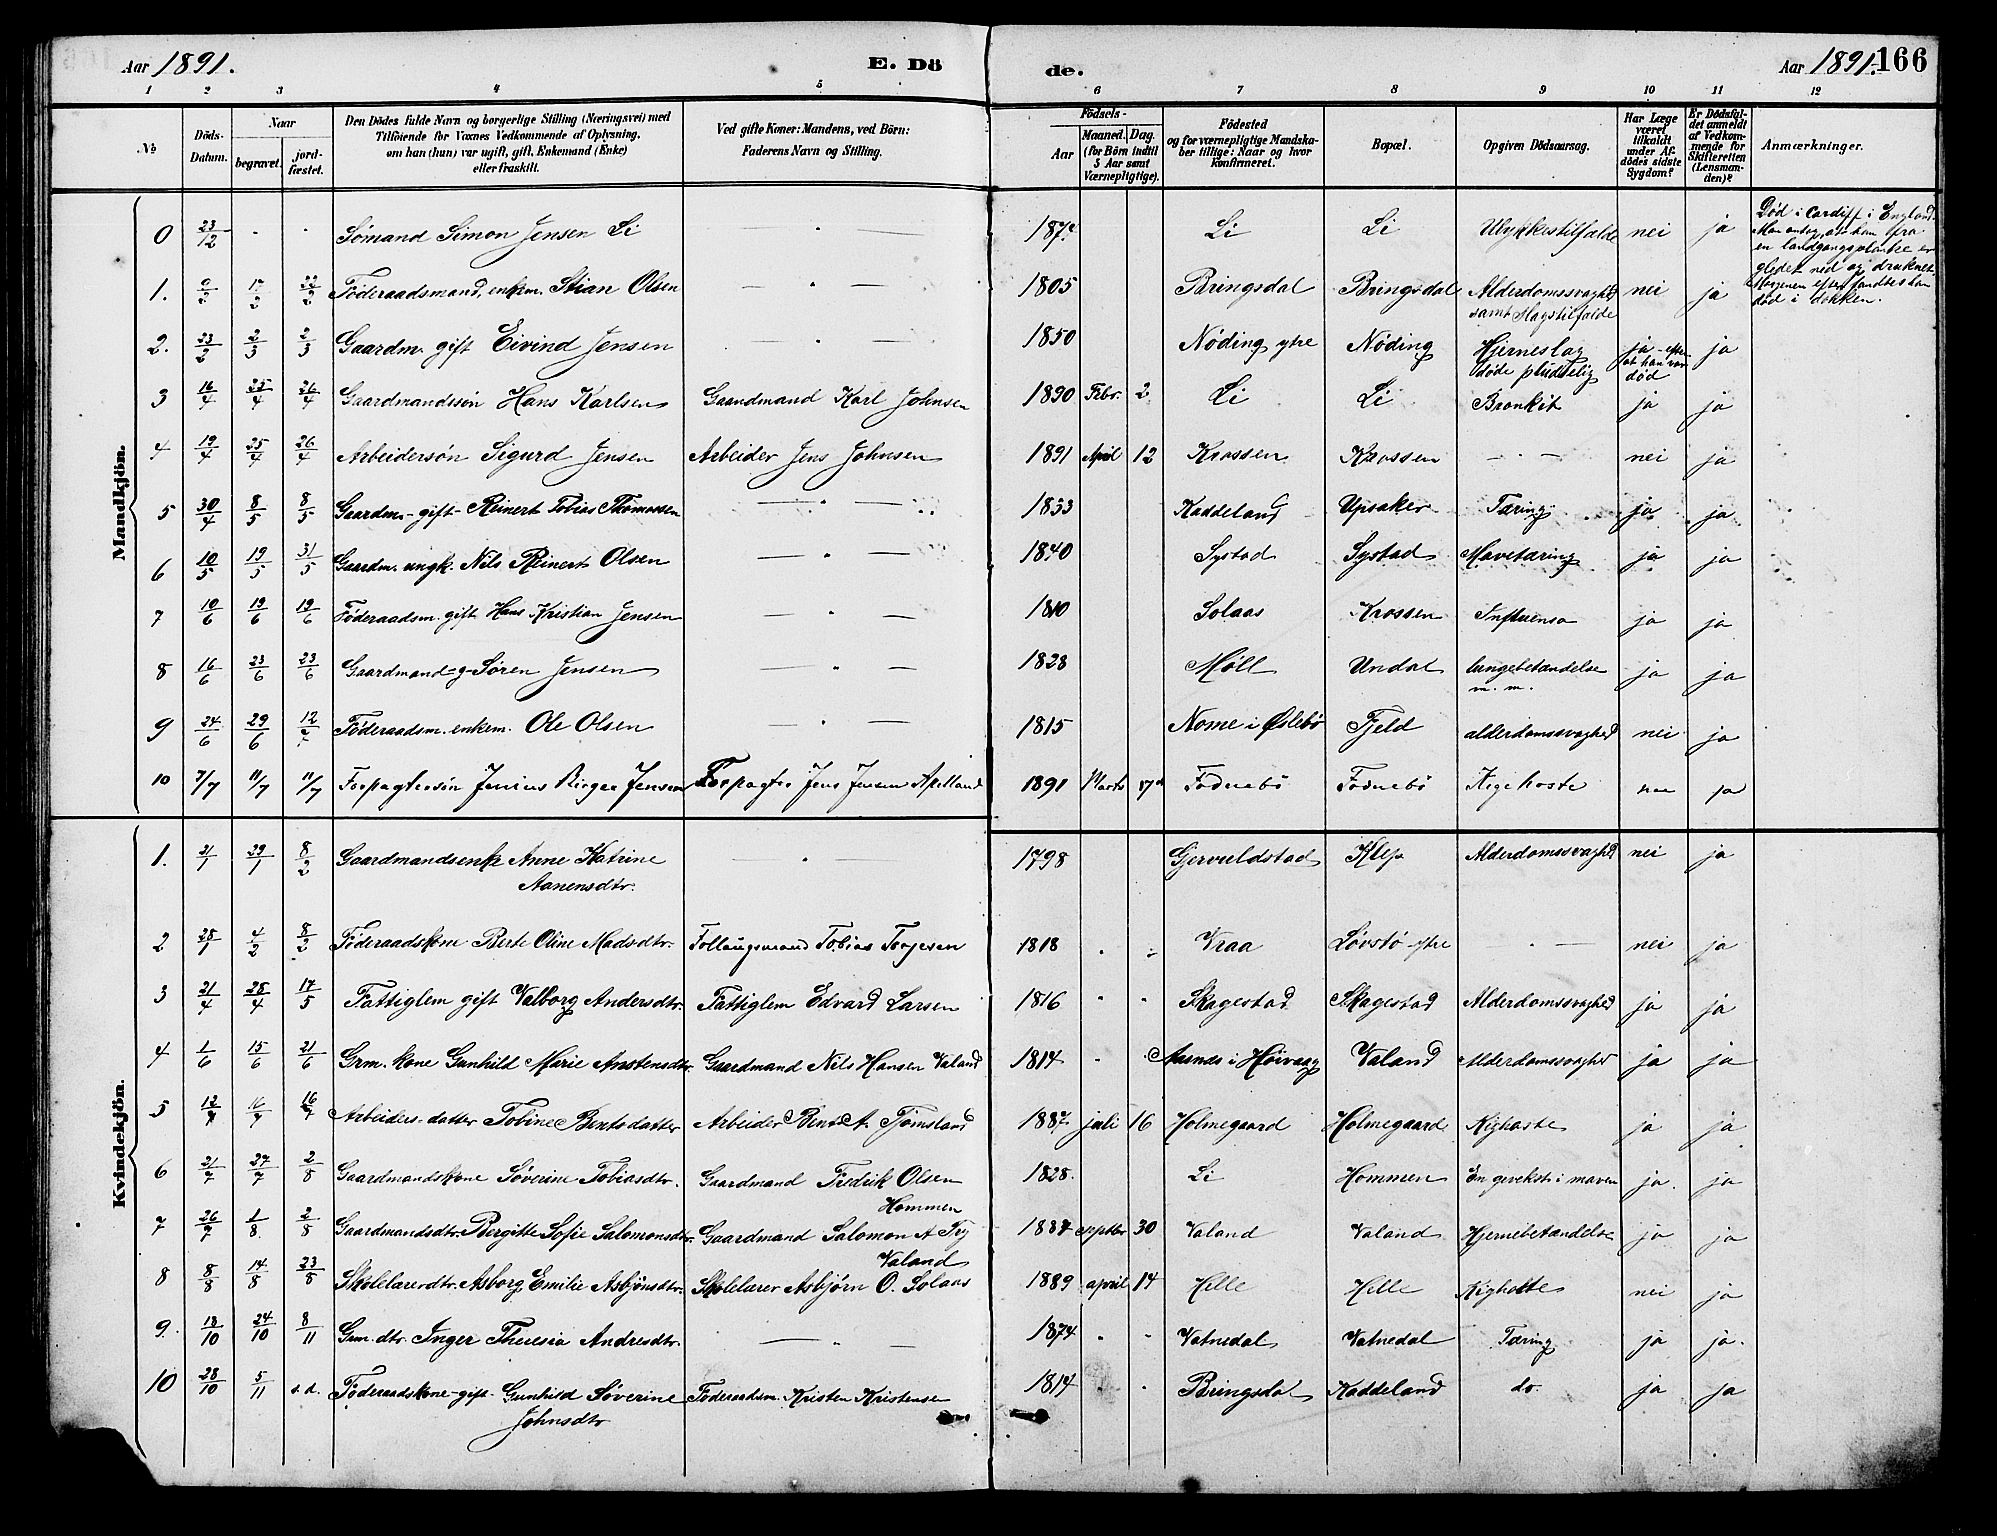 Aar 1891. E. Dö de. Aar 1891. 166
1 2 3 4 5 6 7 8 9 10 11 12
№ Döds-Datum. Naar begravet. jordfæstet. Den Dödes fulde Navn og borgerlige Stilling (Næringsvei) med Tilföiende for Voxnes Vedkommende af Oplysning, om han (hun) var ugift, gift, Enkemand (Enke) eller fraskilt. Ved gifte Koner: Mandens, ved Börn: Faderens Navn og Stilling. Födsels- Aar Maaned. Dag. (for Börn indtil 5 Aar samt Værnepligtige). Födested og for værnepligtige Mandskaber tillige: Naar og hvor konfirmeret. Bopæl. Opgiven Dödsaarsag. Har Læge været tilkaldt under Afdödes sidste Sygdom? Er Dödsfaldet anmeldt af Vedkommende for Skifteretten (Lensmanden)? Anmærkninger.
Mandkjön.
0 23/12 " " Sømand Simon Jensen Li — " — Li Li Ulykkestilfælde nei ja Død i Cardiff i England. Man antog, at han fra en landgangsplanke er gledet ned og druknet. Morgenen efter fandtes han død i dokken.
1. Föderaadsmand, enkm. Stian Olsen — " — 1805 Bringsdal Bringsdal Alderdomssvaghed samt slagstilfælde nei ja
2. 23/2 2/3 2/3 Gaardm. gift Eivind Jensen — " — 1850 Nöding ytre Nöding Hjerneslag døde pludselig ja - efter at han var død ja
3 16/4 25/4 26/4 Gaardmandssön Hans Karlsen Gaardmand Karl Johnsen 1890 Febr. 2 Li Li Bronkit ja ja
4 19/4 25/4 26/4 Arbeidersön Sigurd Jensen Arbeider Jens Johnsen 1891 April 12 Krossen Krossen — " — nei ja
5 30/4 8/5 8/5 Gaardm. - gift - Reinert Tobias Thomassen — " — 1833 Kaddeland Upsaker Tæring ja ja
6 10/5 19/5 31/5 Gaardm. ungk. Nils Reinert Olsen — " — 1840 Systad Systad Mavetæring ja ja
7 10/6 19/6 19/6 Föderaadsm. gift Hans Kristian Jensen — " — 1810 Solaas Krossen Influensa ja ja
8 16/6 23/6 23/6 Gaardmand - g - Sören Jensen — " — 1828 Møll Undal lungebetændelse m. m. ja ja
9 24/6 29/6 12/7 Föderaadsm. enkem. Ole Olsen — " — 1815 Nome i Øslebø Fjeld alderdomssvaghed nei ja
10 7/7 11/7 11/7 Forpagtersön Jenius Birger Jensen Forpagter Jens Jensen Apelland 1891 Marts 17d Fodnebö Fodnebö Kigehoste nei ja
Kvindekjön.
1. 21/1 29/1 8/2 Gaardmandsenke Anne Katrine Aanensdtr. — " — 1798 Gjervoldstad Klep Alderdomssvaghed nei ja
2 25/1 4/2 8/2 Föderaadskone Berte Oline Madsdtr. Follaugsmand Tobias Torjesen 1818 " " Vraa Lövstö ytre " — nei ja
3 21/4 28/4 17/5 Fattiglem gift Valborg Andersdtr. Fattiglem Edvard Larsen 1816 " " Skagestad Skagestad Alderdomssvaghed ja ja
4 1/6 15/6 21/6 Grm. kone Gunhild Marie Anstensdtr. Gaardmand Nils Hansen Valand 1814 " " Aasnes i Høivaag Valand Alderdomssvaghed ja ja
5 12/7 16/7 16/7 Arbeiders-datter Tobine Bentsdatter Arbeider Bent A. Tjømsland 1887 juli 16 Holmegaard Holmegaard Kighoste ja ja
6 21/7 27/7 2/8 Gaardmandskone Söverine Tobiasdtr. Gaardmand Fredrik Olsen Hommen 1828. Li Hommen En gevekst i maven ja ja
7 26/7 1/8 2/8 Gaardmandsdtr. Bergitte Sofie Salomonsdtr. Gaardmand Salomon A Valand septbr 30 Valand Valand Hjernebetændelse ja ja
8 8/8 14/8 23/8 Skolelærerdtr. Asborg Emilie Asbjönsdtr. Skolelærer Asbjørn O. Solaas 1889 april 14 Hille Hille Kighoste nei ja
9. 18/10 24/10 8/11 Grm. dtr. Inger Theresia Andresdtr. — " — 1874 " " Vatnedal Vatnedal Tæring ja ja.
10 28/10 5/11 s.d. Föderaadskone - gift - Gunhild Söverine Johnsdtr Föderaadsm. Kristen Kristensen 1814 " " Bringsdal Kaddeland do. ja ja